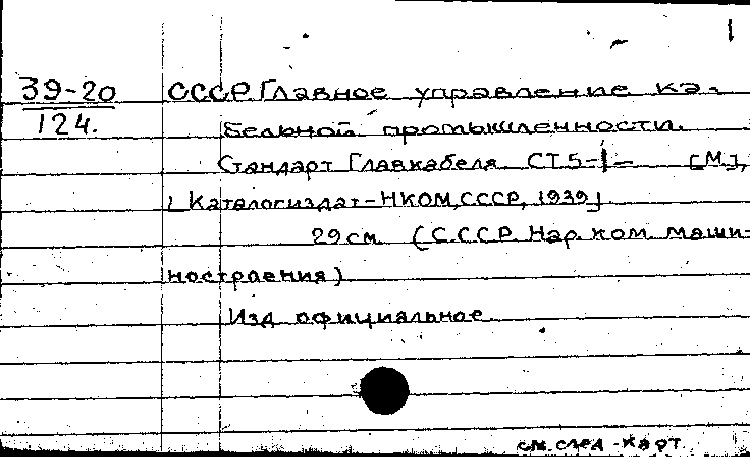 1
39-20
124.
СССР. Главное управление ка-
бельной промышленности.
Стандарт Главкабеля. СТ 5-1- [М.],
[Каталогиздат-НКОМ, СССР, 1939]
29 см. (СССР. Нар. ком. маши-
ностроения)
Изд. официальное.
см. след. карт